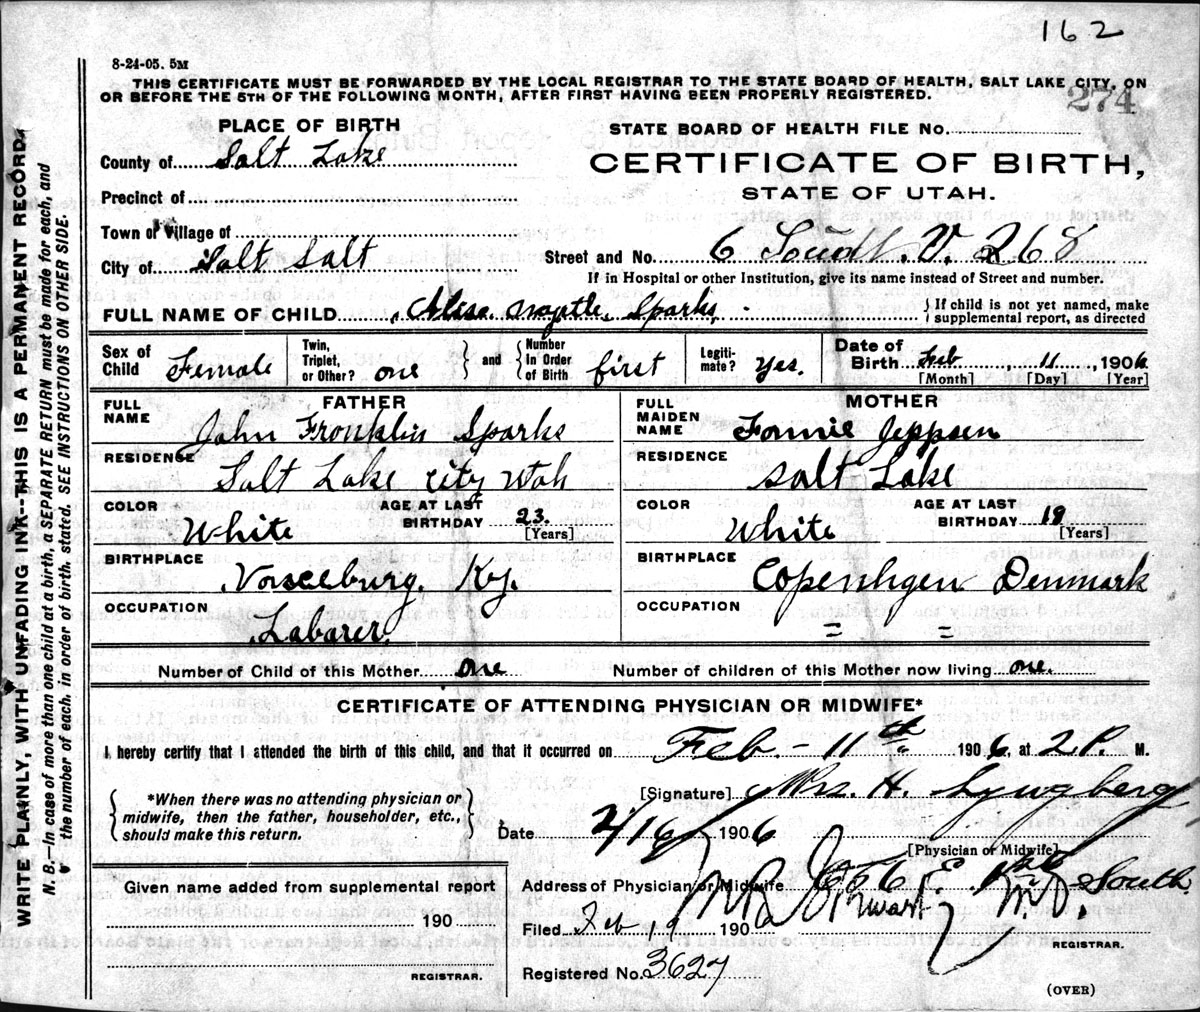 162
8-24-05. 5M
THIS CERTIFICATE MUST BE FORWARDED BY THE LOCAL REGISTRAR TO THE STATE BOARD OF HEALTH, SALT LAKE CITY, ON
OR BEFORE THE 5TH OF THE FOLLOWING MONTH, AFTER FIRST HAVING BEEN PROPERLY REGISTERED.
274
WRITE PLAINLY, WITH UNFADING INK--THIS IS A PERMANENT RECORD.
N. B.—In case of more than one child at a birth, a SEPARATE RETURN must be made for each, and
the number of each, in order of birth, stated. SEE INSTRUCTIONS ON OTHER SIDE.
PLACE OF BIRTH
County of Salt Lake
Precinct of
Town or Village of
City of Salt Salt
STATE BOARD OF HEALTH FILE No.
CERTIFICATE OF BIRTH,
STATE OF UTAH.
Street and No. 6 268
If in Hospital or other Institution, give its name instead of Street and number.
FULL NAME OF CHILD Myrtle Sparks
If child is not yet named, make
supplemental report, as directed
Sex of Child Female
Twin, Triplet, or Other? one
and
Number In Order of Birth first
Legitimate? Yes.
Date of Birth Feb 11, 1906
[Month] [Day] [Year]
FATHER
FULL NAME John Franklin Sparks
RESIDENCE Salt Lake City Utah
COLOR White
AGE AT LAST BIRTHDAY 23
[Years]
BIRTHPLACE Ky.
OCCUPATION Labarer
MOTHER
FULL MAIDEN NAME Fannie Jeppsen
RESIDENCE Salt Lake
COLOR White
AGE AT LAST BIRTHDAY 19
[Years]
BIRTHPLACE Copenhgen Denmark
OCCUPATION = =
Number of Child of this Mother One
Number of children of this Mother now living one.
CERTIFICATE OF ATTENDING PHYSICIAN OR MIDWIFE*
I hereby certify that I attended the birth of this child, and that it occurred on Feb - 11th 1906, at 2 P. M.
*When there was no attending physician or
midwife, then the father, householder, etc.,
should make this return.
[Signature] Mrs. H. Lyngberg
Date 2/16 1906
[Physician or Midwife]
Given name added from supplemental report
190
REGISTRAR.
Address of Physician or Midwife 656 E. South
Filed Feb 19 190 Stewart M.D.
REGISTRAR.
Registered No. 3627
(OVER)